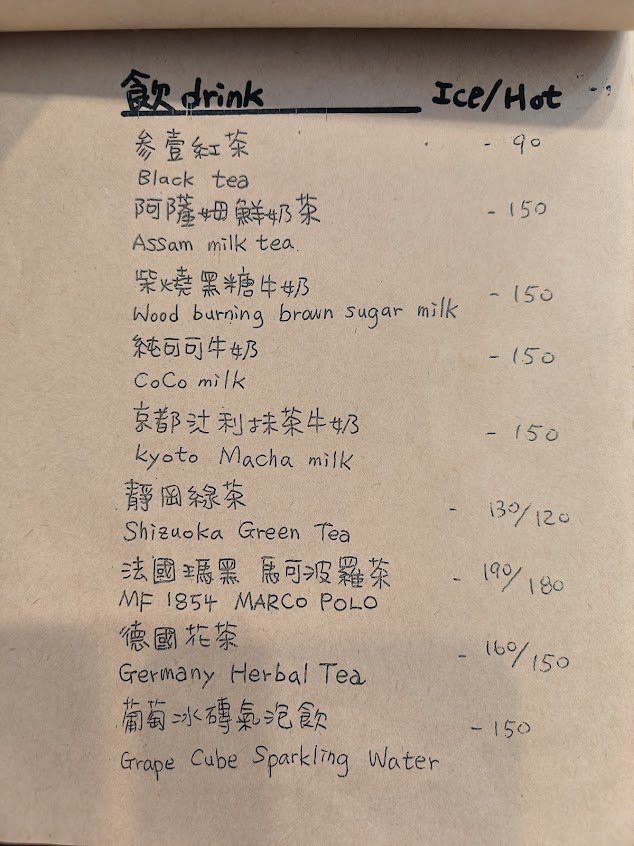 飲 drink Ice/Hot
参壹紅茶 - 90
Black tea
阿薩姆鮮奶茶 - 150
Assam milk tea.
柴燒黑糖牛奶 - 150
Wood burning brown sugar milk
純可可牛奶 - 150
CoCo milk
京都辻利抹茶牛奶 - 150
kyoto Macha milk
靜岡綠茶 - 130/120
Shizuoka Green Tea
法國瑪黑 馬可波羅茶 - 190/180
MF 1854 MARCO POLO
德國花茶 - 160/150
Germany Herbal Tea
葡萄冰磚氣泡飲 - 150
Grape Cube Sparkling Water